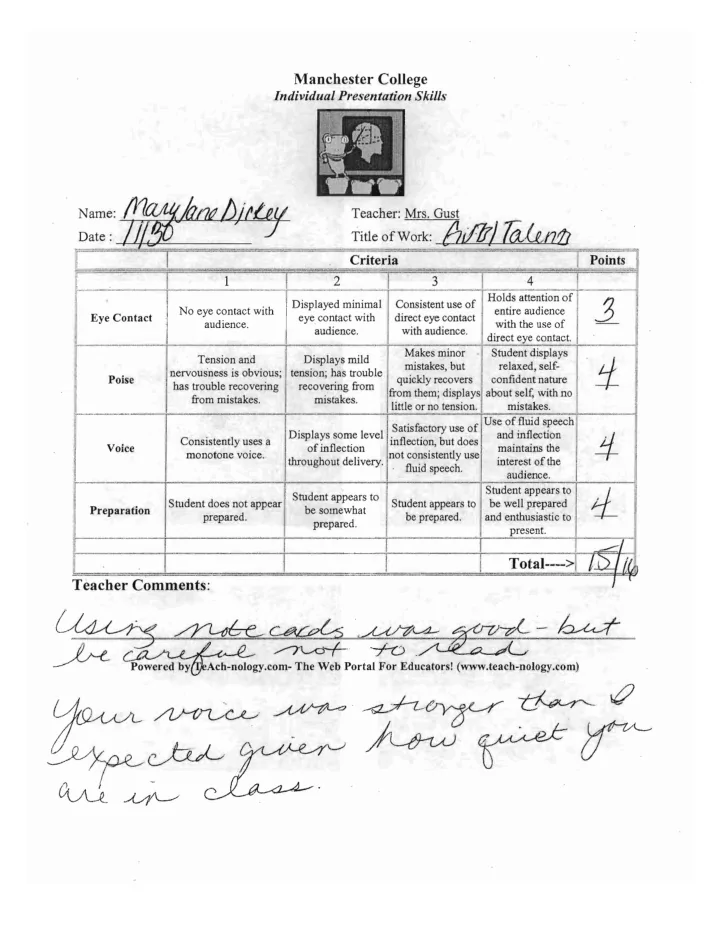 Manchester College
Individual Presentation Skills
Name: MaryJane Dickey
Teacher: Mrs. Gust
Date : 11/30
Title of Work: Talent
Criteria
Points
1
2
3
4
Eye Contact
No eye contact with audience.
Displayed minimal eye contact with audience.
Consistent use of direct eye contact with audience.
Holds attention of entire audience with the use of direct eye contact.
3
Poise
Tension and nervousness is obvious; has trouble recovering from mistakes.
Displays mild tension; has trouble recovering from mistakes.
Makes minor mistakes, but quickly recovers from them; displays little or no tension.
Student displays relaxed, self-confident nature about self, with no mistakes.
4
Voice
Consistently uses a monotone voice.
Displays some level of inflection throughout delivery.
Satisfactory use of inflection, but does not consistently use fluid speech.
Use of fluid speech and inflection maintains the interest of the audience.
4
Preparation
Student does not appear prepared.
Student appears to be somewhat prepared.
Student appears to be prepared.
Student appears to be well prepared and enthusiastic to present.
4
Total---->
15/16
Teacher Comments:
Using note cards was good - but
be careful not to read
Powered by TeAch-nology.com- The Web Portal For Educators! (www.teach-nology.com)
Your voice was stronger than I
expected given how quiet you
are in class.